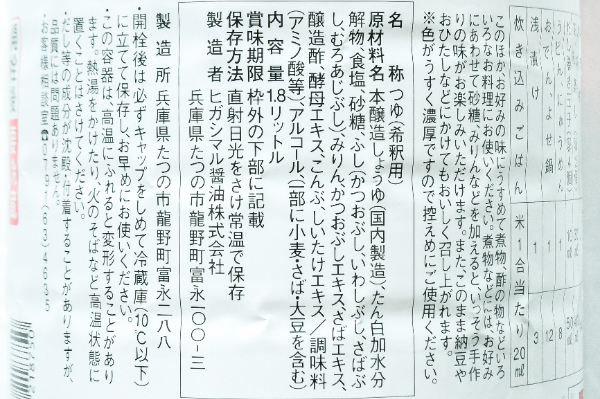 おでんよせ鍋 1 12 8
浅漬け 1 1
炊き込みごはん 米1合当たり20ml
このほかお好みの味にうすめて煮物、酢の物などいろ
いろなお料理にお使いください。煮物などには、お好み
にあわせて砂糖、みりんなどを加えると、いっそう手作
りの味がお楽しみいただけます。また、このまま納豆や
おひたしなどにかけてもおいしく召し上がれます。
※色がうすく濃厚ですので控えめにご使用ください。
名 称 つゆ(希釈用)
原材料名 本醸造しょうゆ(国内製造)、たん白加水分
解物、食塩、砂糖、ふし(かつおぶし、いわしぶし、さばぶ
し、むろあじぶし)、みりん、かつおぶしエキス、さばエキス、
醸造酢、酵母エキス、こんぶ、しいたけエキス/調味料
(アミノ酸等)、アルコール、(一部に小麦・さば・大豆を含む)
内 容 量 1.8リットル
賞味期限 枠外の下部に記載
保存方法 直射日光をさけ常温で保存
製 造 者 ヒガシマル醤油株式会社
兵庫県たつの市龍野町富永一〇〇-三
製 造 所 兵庫県たつの市龍野町富永二八八
・開栓後は必ずキャップをしめて冷蔵庫(10℃以下)
に立てて保存し、お早めにお使いください。
・この容器は、高温にふれると変形することがあり
ます。熱湯をかけたり、火のそばなど高温状態に
置くことはさけてください。
・だし等の成分が沈殿・付着することがありますが、
品質には問題ありません。
・お客様相談室☎0791(63)4635